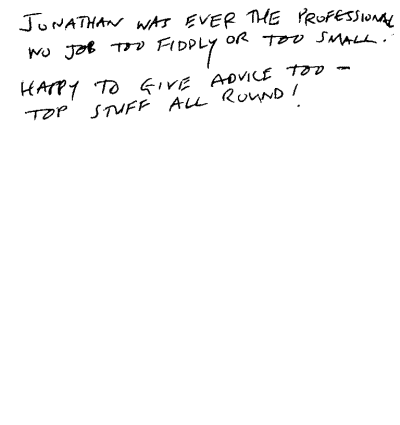 JONATHAN WAS EVER THE PROFESSIONAL
NO JOB TOO FIDDLY OR TOO SMALL.
HAPPY TO GIVE ADVICE TOO -
TOP STUFF ALL ROUND!